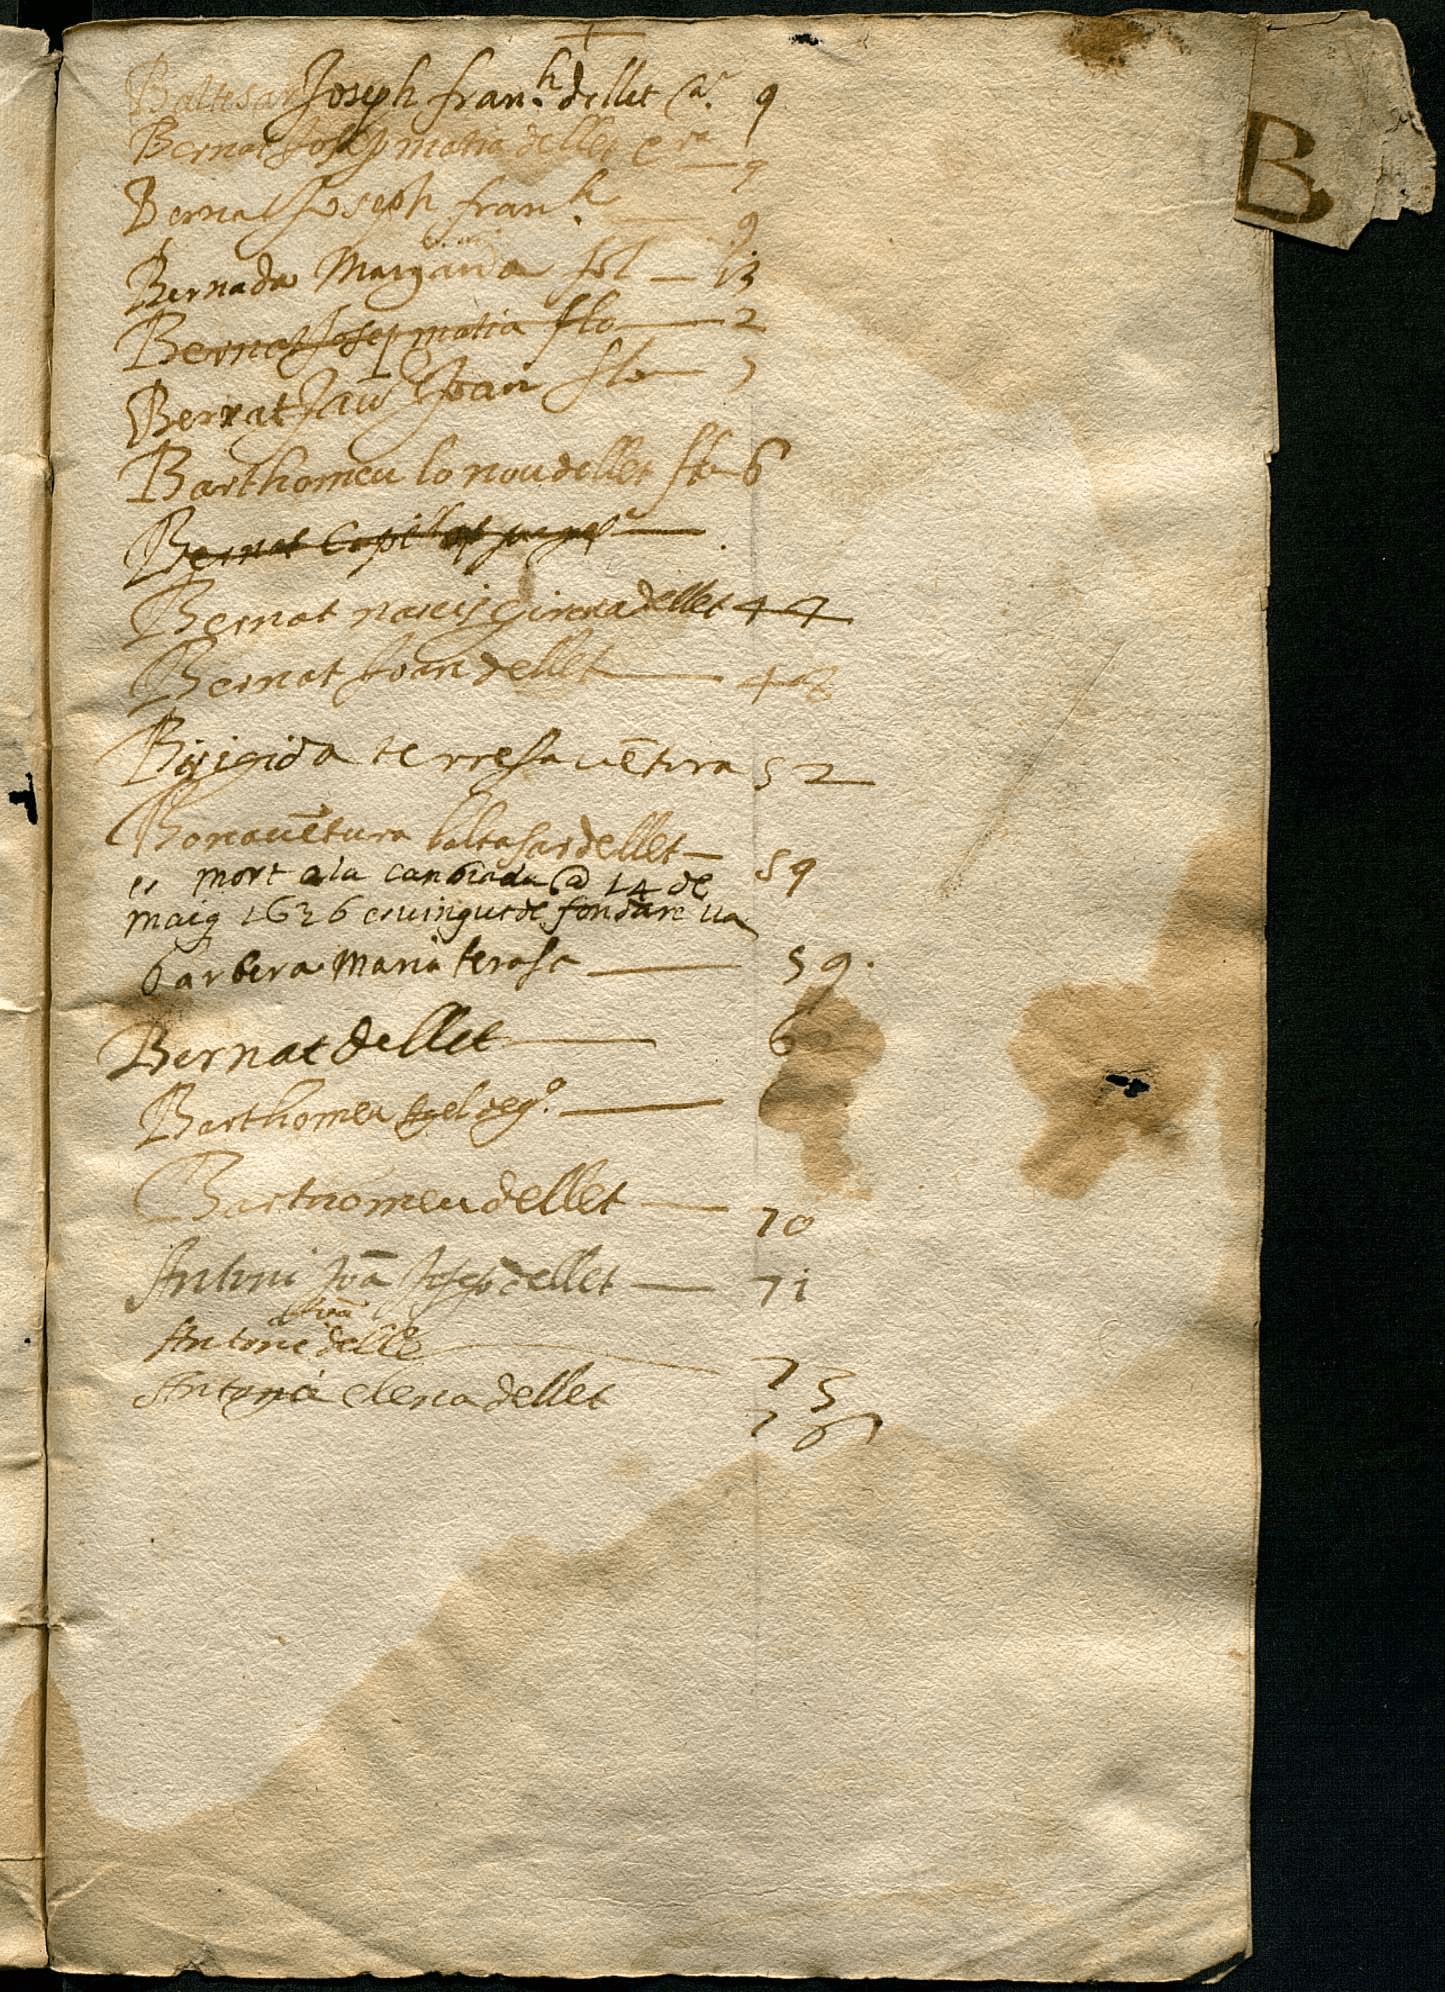 +
B
Baltesar Joseph fran.h dellet Ca. 9
Bernat Josep matia dellet 9
Bernat Joseph fran.h 9
Bernada Margarida fol 13
Bernat Josep matia ffo 2
Bernat Jau Joan ffo
Barthomeu lo nou dellet ffo 6
Bernat
Bernat narcis ginera dellet 44
Bernat Joan dellet 48
Brigida terresa uētura 52
Bonauētura baltasar dellet 59
es mort a la @ 14 de
maig 1636
barbera Maria terasa 59.
Bernat dellet 6
Barthomeu
Barthomeu dellet 70
Antoni Joā Josep dellet 71
Joā
Antoni delle 73
Antonia elena dellet 76